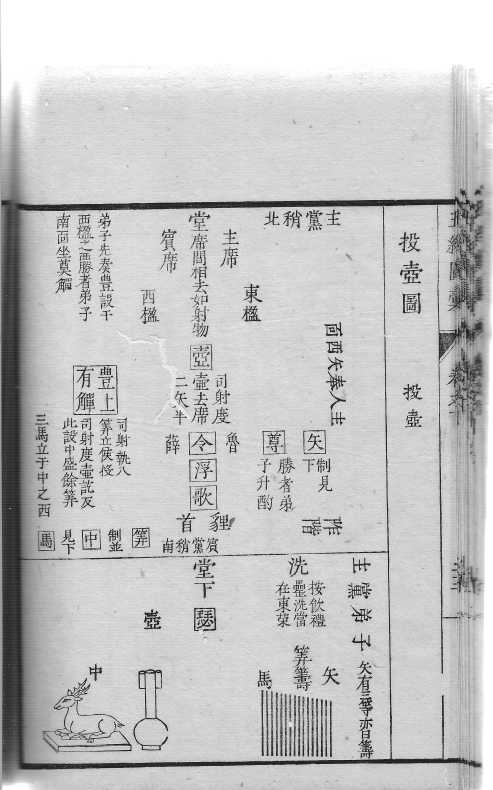 投壺圖　投壺
主黨稍北
主人奉矢西面
主席
東楹
堂
席間相去如射物
壺
司射度
壺去席
二矢半
賓席
西楹
弟子先奏豊設于
西楹之西勝者弟子
南面坐奠觶
豊上
有觶
司射執八
筭立俟投
司射度壺訖反
此設中盛餘筭
三馬立于中之西
矢
制見
下
尊
勝者弟
子升酌
魯
令
浮
歌
薛
貍
首
阼
階
賓黨稍南
筭
制並
中
見下
馬
主黨弟子
矢有三等亦曰籌
洗
按飲禮
罍洗當
在東榮
堂下
瑟
矢
筭籌
馬
壺
中